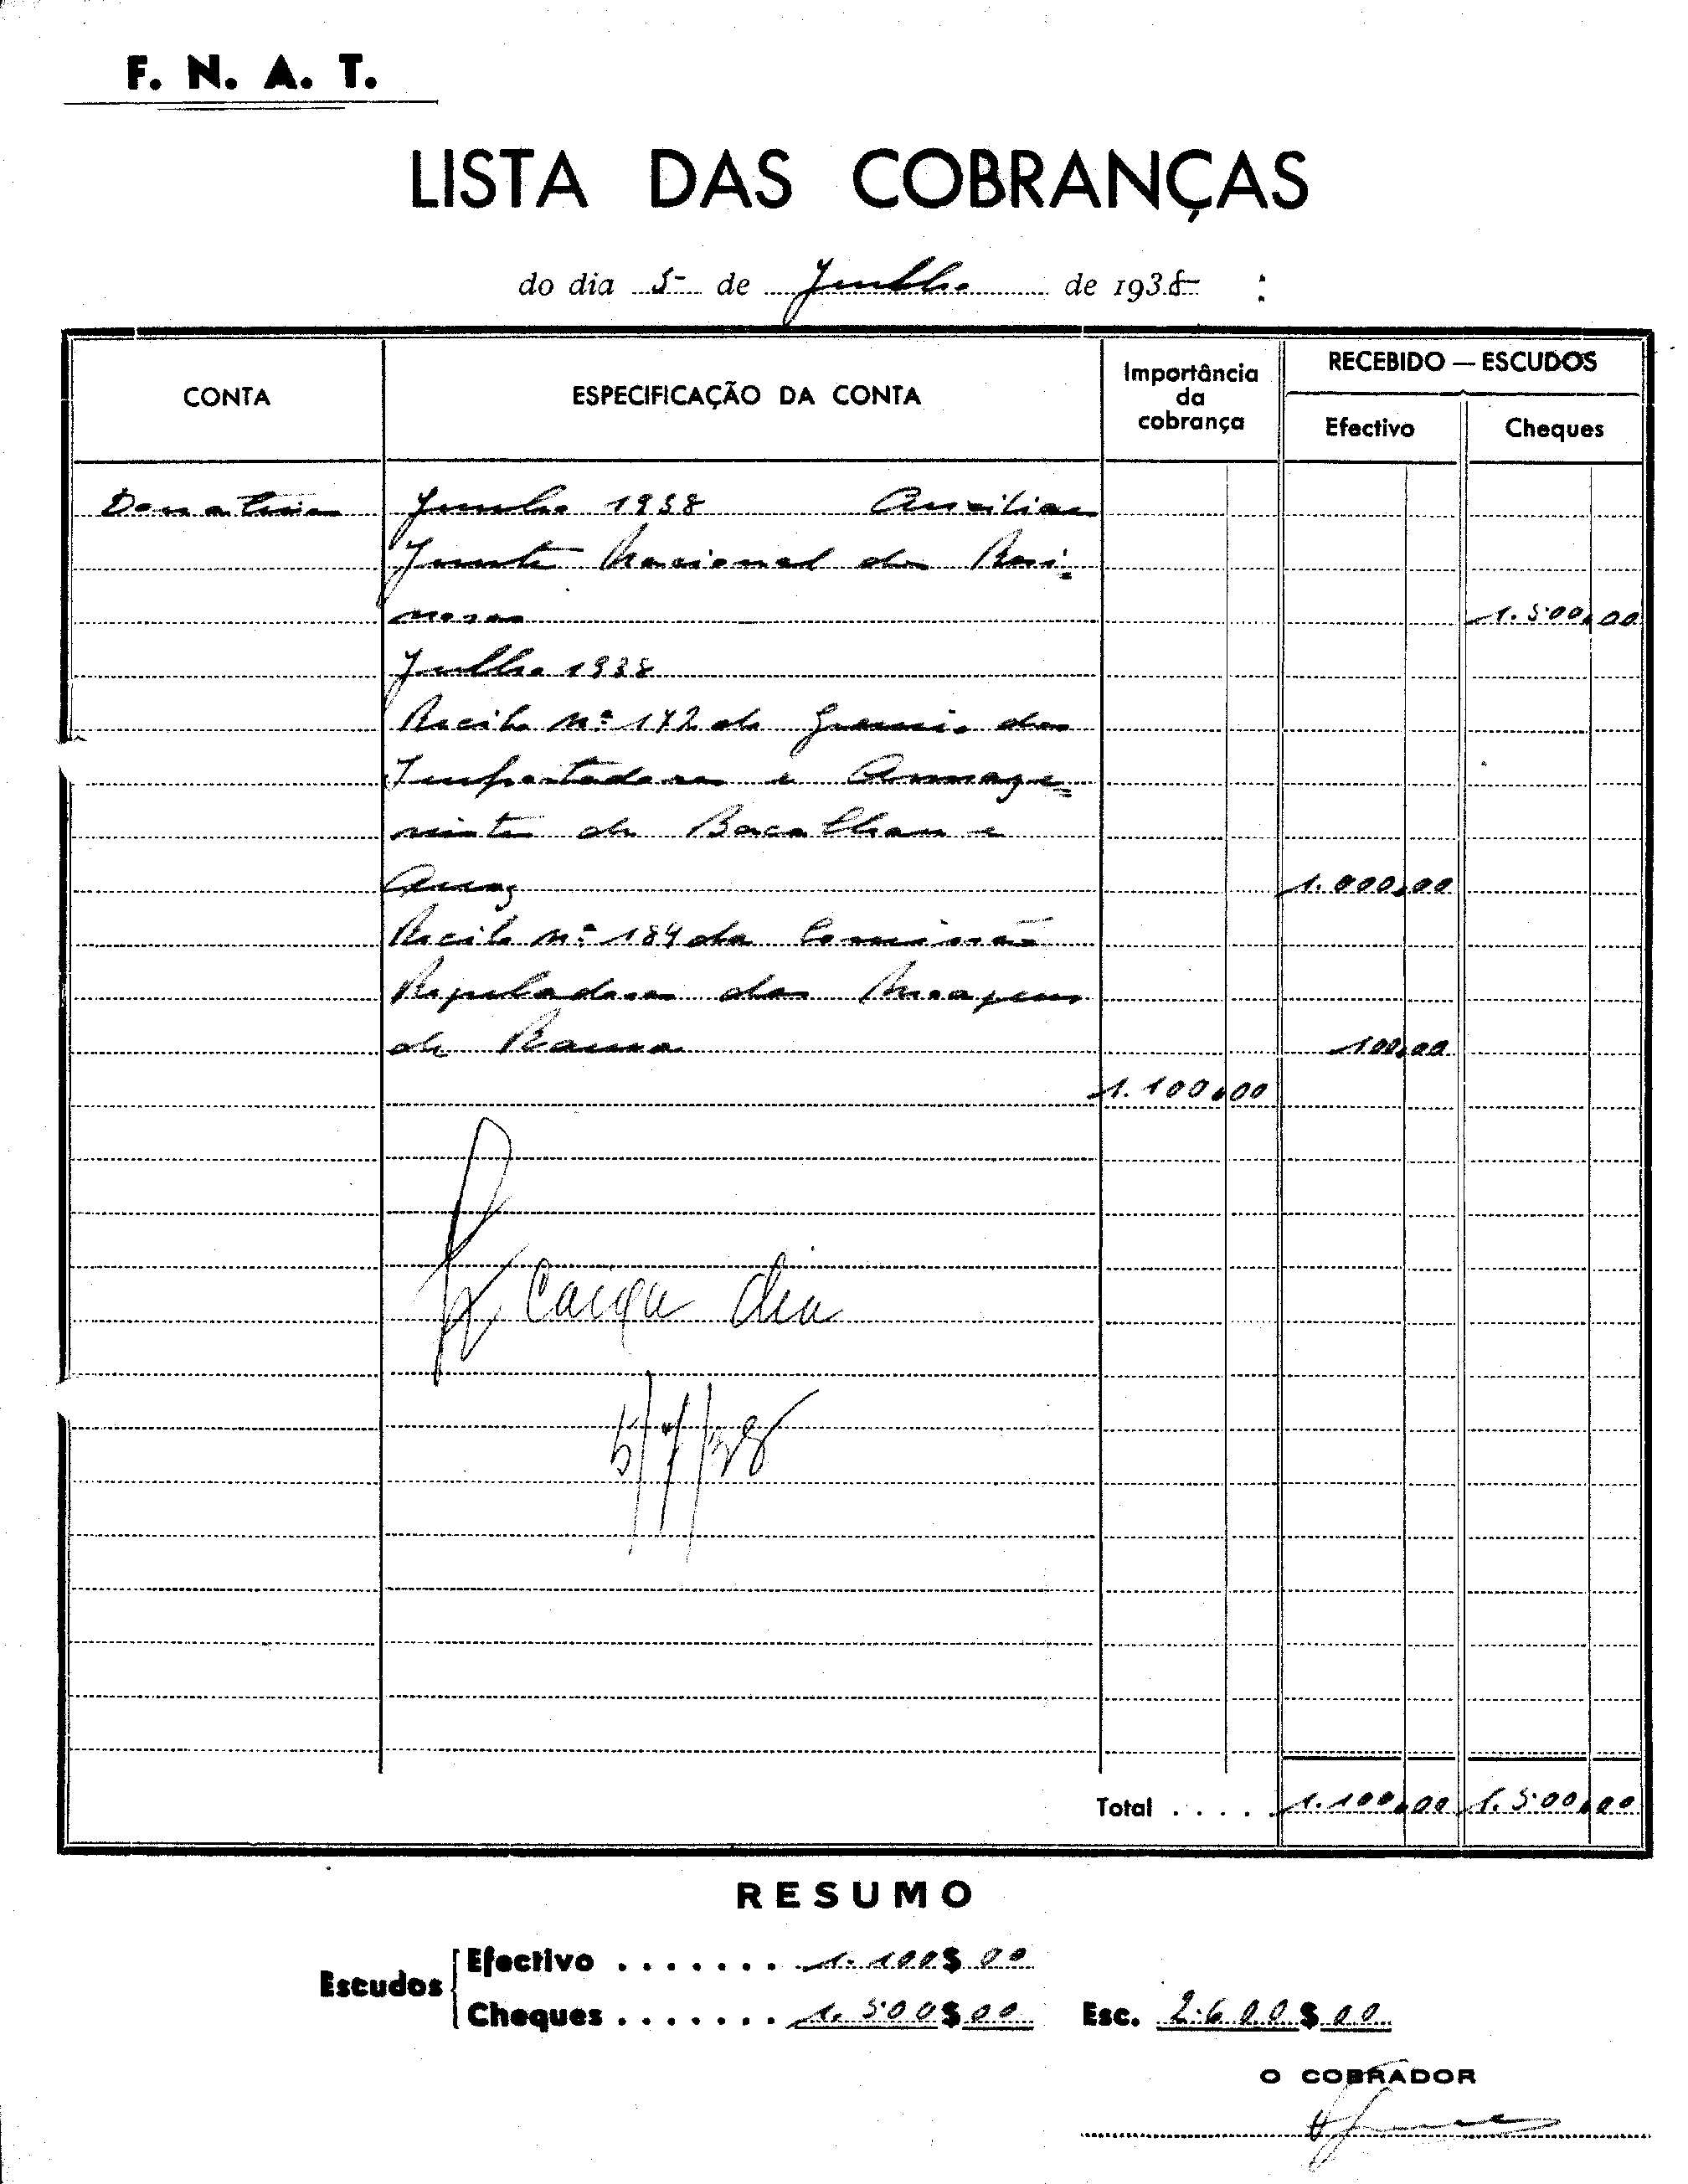 F. N. A. T.
LISTA DAS COBRANÇAS
do dia 5 de Julho de 1938
CONTA
ESPECIFICAÇÃO DA CONTA
Importância
da
cobrança
RECEBIDO — ESCUDOS
Efectivo
Cheques
Donativos Junho 1938 Auxiliar
Junta Nacional dos Resi-
nosos 1.500,00
Julho 1938
Recibo nº 172 do Gremio dos
Importadores e Armaze-
nistas de Bacalhau e
Arroz 1.000,00
Recibo nº 184 da Comissão
Reguladora das Moagens
de Rama 100,00
1.100,00
Caixa dia
5/7/38
Total . . . . . 1.100,00 1.500,00
RESUMO
Escudos
Efectivo . . . . . . . 1.100$00
Cheques . . . . . . . 1.500$00 Esc. 2.600$00
O COBRADOR